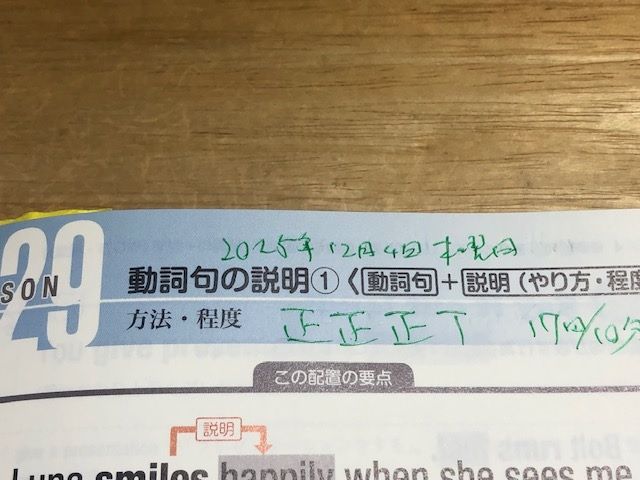 2025年12月4日 木曜日
SON 29
動詞句の説明① 〈動詞句+説明(やり方・程度
方法・程度 正正正丅 17回/10分
この配置の要点
説明
Luna smiles happily when she sees me